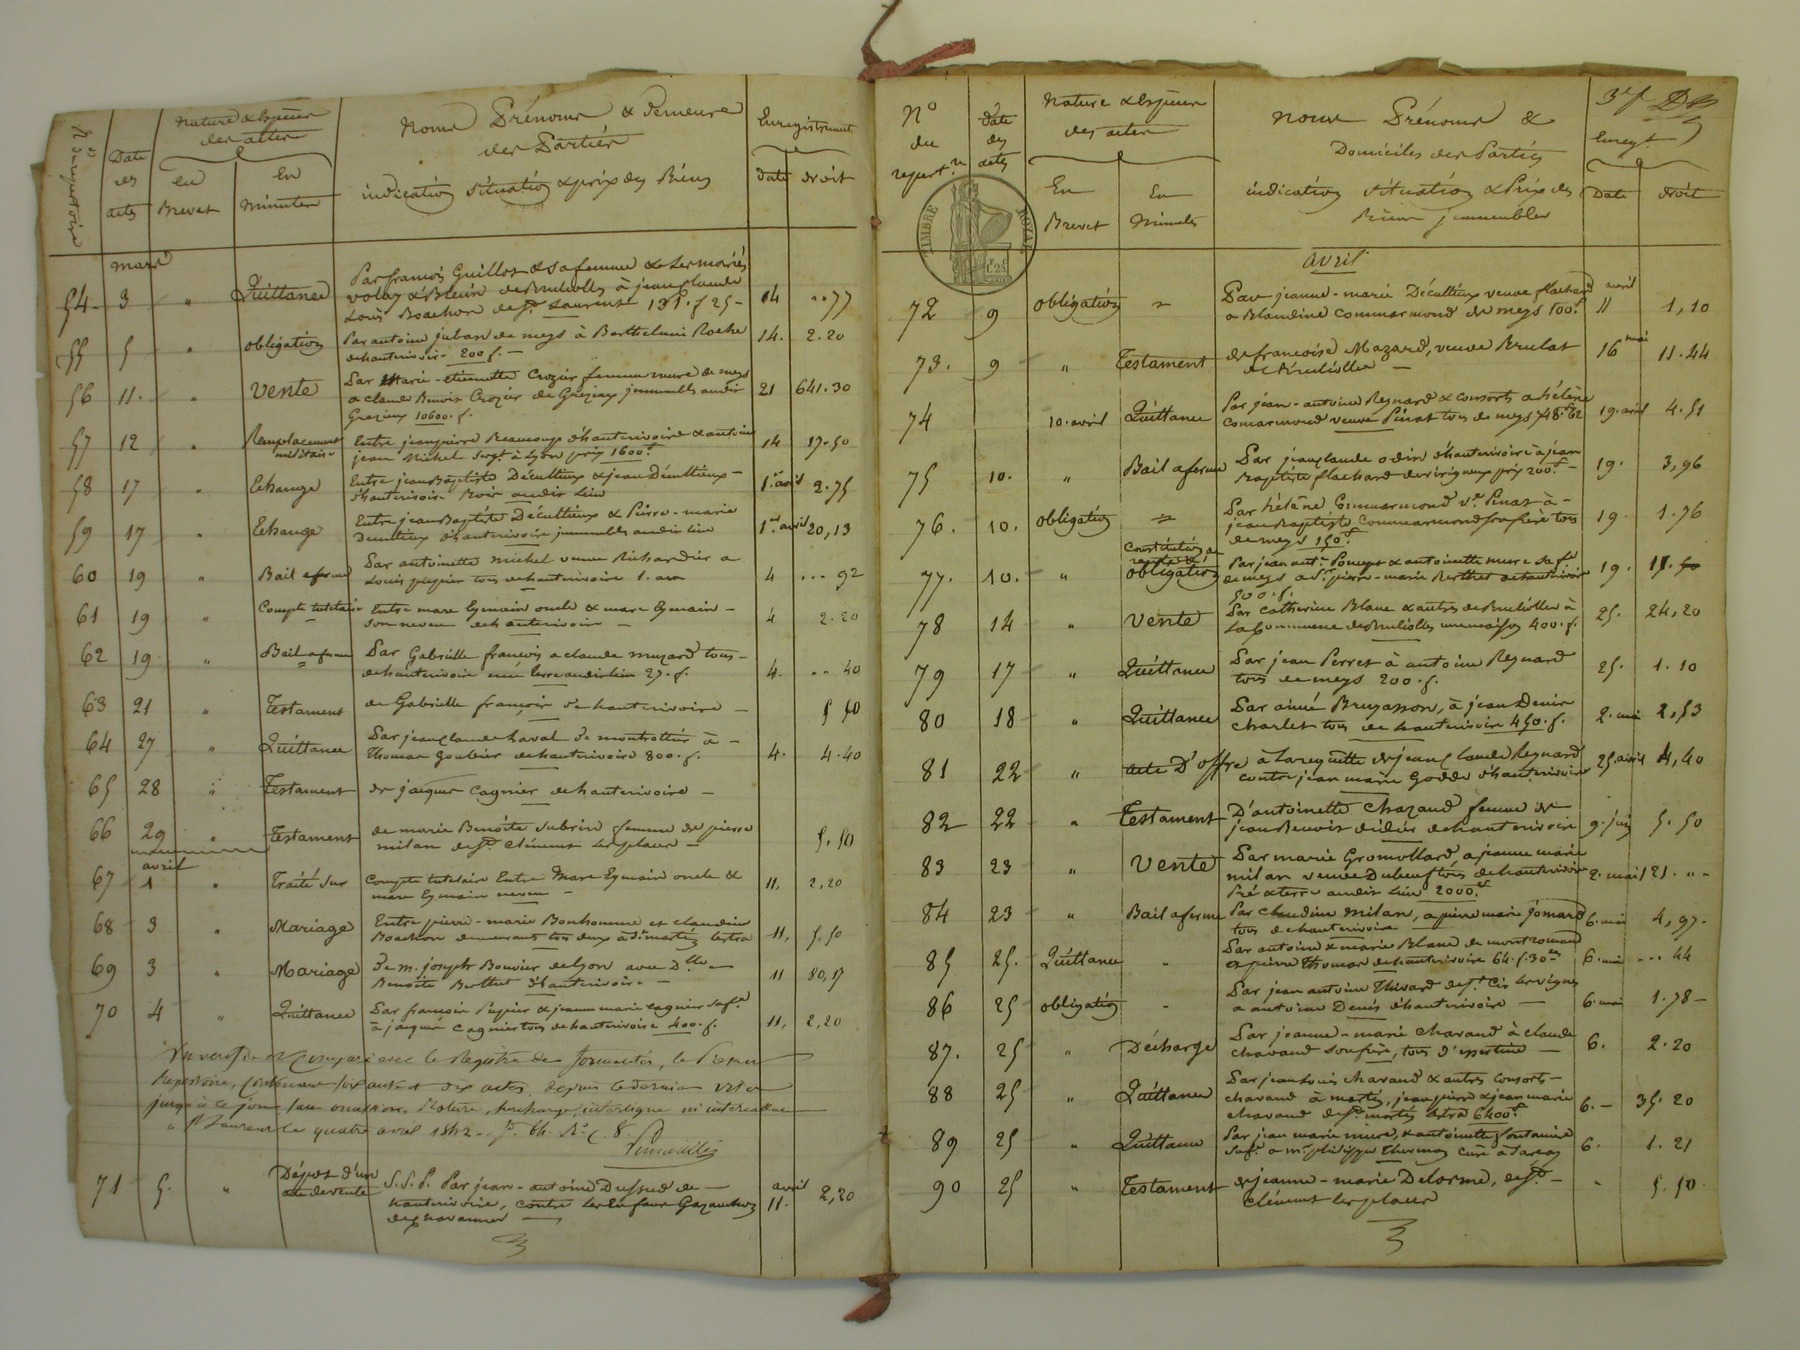 N.o du repertoire
Date
des
actes
Nature & Espèces
des actes
en
Brevet
En
minutes
Noms Prénoms & demeure
des Parties
indication situation & prix des Biens
Enregistrement
date droit
mars
54. 3 " Quittance Par françois Guillot & sa femme & les mariés
volay & Blein de Brulliolles à jean claude
Louis Boachon de St. Laurent 131 f 25 - 14 .. 77
55 5 " obligation Par antoine juban de meys à Barthelemi Roche
d'hauterivoire 200 f. — 14. 2.20
56 11. " Vente Par Marie-etiennette Crozier femme mure de meys
a claude Benoit Crozier de Grézieux immeubles audit
Grezieux 10600. f. 21 641.30
57 12 " Remplacement
militaire Entre jean pierre Beaucoup d'hauterivoire & antoine
jean Michel sergt. à Lyon prix 1600 f 14 17.50
58 17 " Echange Entre jean Baptiste Décultieux & jean Décultieux -
d'hauterivoire Bois audit Lieu 1.er avril 2.75
59 17 " Echange Entre jean Baptiste Décultieux & Pierre-marie
Décultieux d'hauterivoire immeubles audit lieu 1.er avril 20,13
60 19 " Bail a ferme Par antoinette michel veuve Richardier a
Louis pupier tous d'hauterivoire 4 ... 92
61 19 " Compte tutelaire Entre marc Eymain oncle & marc Eymain -
son neveu d'hauterivoire - 4 2.20
62 19 " Bail a ferme Par Gabrielle françois a claude muzard tous -
d'hauterivoire une terre audit lieu 27. f. 4. .. 40
63 21 " Testament de Gabrielle françois d'hauterivoire - 5 50
64 27 " Quittance Par jean claude Laval de montrottier à -
Thomas Goubier d'hauterivoire 800. f. 4. 4.40
65 28 " Testament de jacques Cagnier d'hauterivoire -
66 29 " Testament de marie Benoite Subrin femme de pierre
milan de St. Clément les places - 5.50
avril
67 1 " Traité sur compte tutelaire Entre Marc Eymain oncle &
marc Eymain neveu - 11. 2,20
68 3 " Mariage Entre pierre-marie Bonhomme et claudine
Boachon demeurant tous deux à St. martin lestra 11, 5,50
69 3 " Mariage De m. joseph Bouvier de Lyon avec Dlle -
Benoite Berthet d'hauterivoire - 11 80,17
70 4 " Quittance Par françois Pupier & jeanne marie cagnier sa fe.
à jacques Cagnier tous d'hauterivoire 400. f. 11, 2,20
Vu vérifié et comparé avec le Registre de formalités, le Présent
Repertoire, contenant soixante et dix actes depuis le dernier visa
jusqu'à ce jour sans omission, Rature, surcharge, interligne ni intercallation
a St Laurent le quatre avril 1842.
71 5. " Dépot d'un
acte de vente S.S.P. Par jean-antoine Dussud de -
hauterivoire, contre avril
11. 2,20
N.o
du
repert.re
date
des
actes
Nature & Espèces
des actes
En
Brevet
En
Minutes
noms Prénoms &
Domiciles des Parties
indication situation & Prix des
Biens immeubles
3.e f
Enregt.
Date droit
TIMBRE ROYAL
avril
72 9 obligation " Par jeanne-marie Décultieux veuve flachard
a Blandine Commarmond de meys 100 f avril
11 1,10
73. 9 " Testament de françoise Mazard, veuve Brulat
de Brulliolles — 16 mai 11.44
74 10. avril Quittance Par jean-antoine Reynard & consorts a hélène
Comarmond veuve Pinat tous de meys 748 f 62 19. avril 4.51
75 10. " Bail a ferme Par jean claude odin d'hauterivoire à jean
Baptiste flachard de virigneux prix 200 f - 19. 3,96
76. 10. obligation " Par hélène Commarmond ve. Pinat à -
jean Baptiste Commarmond son frère tous
de meys 150 f 19. 1.76
77. 10. " Constitution de
obligation Par jean ant.e & antoinette mure sa fe.
de meys a Sr. pierre-marie Berthet d'hauterivoire
500. f. 19. 11.
78 14 " Vente Par Catherine Blanc & autres de Brulliolles à
La Commune de Brulliolles une maison 400. f. 25. 24,20
79 17 " Quittance Par jean Perret à antoine Reynard
tous de meys 200. f. 25. 1.10
80 18 " Quittance Par aimé Bruyasson, à jean Denis
Charlet tous de hauterivoire 450. f. 2. mai 2,53
81 22 " acte D'offre à La requête de jean claude Reynard
contre jean marie d'hauterivoire 25 avril 4,40
82 22 " Testament D'antoinette Chazaud femme de
jean Benoit didier d'hauterivoire 9. juin 5.50
83 23 " Vente Par marie Gromollard, a jeanne marie
milan veuve Dubeuf tous d'hauterivoire
Pré & terre audit Lieu 2000 f 2. mai 121. " -
84 23 " Bail a ferme Par claudine milan, a pierre marie jomard
tous d'hauterivoire 6. mai 4,97.
85 25. Quittance " Par antoine & marie Blanc de montromand
a pierre Thomas d'hauterivoire 64. f. 30 c 6. mai ... 44
86 25 obligation " Par jean antoine Thivard de St. Cir les vignes
a antoine Denis d'hauterivoire — 6. mai 1.78 -
87. 25 " Décharge Par jeanne-marie Chavand à claude
chavand son frère, tous d'essertine — 6. 2.20
88 25 " Quittance Par jean Louis chavand & autres consorts -
chavand à martin, jean pierre & jean marie
chavand de St. martin lestra 6400 f 6. - 35.20
89 25 " Quittance Par jean marie mure, & antoinette fontanière
sa fe. a mr. philippe Thermoz Curé à 6. 1.21
90 25 " Testament de jeanne-marie Delorme, de St. -
Clément les places " 5.50